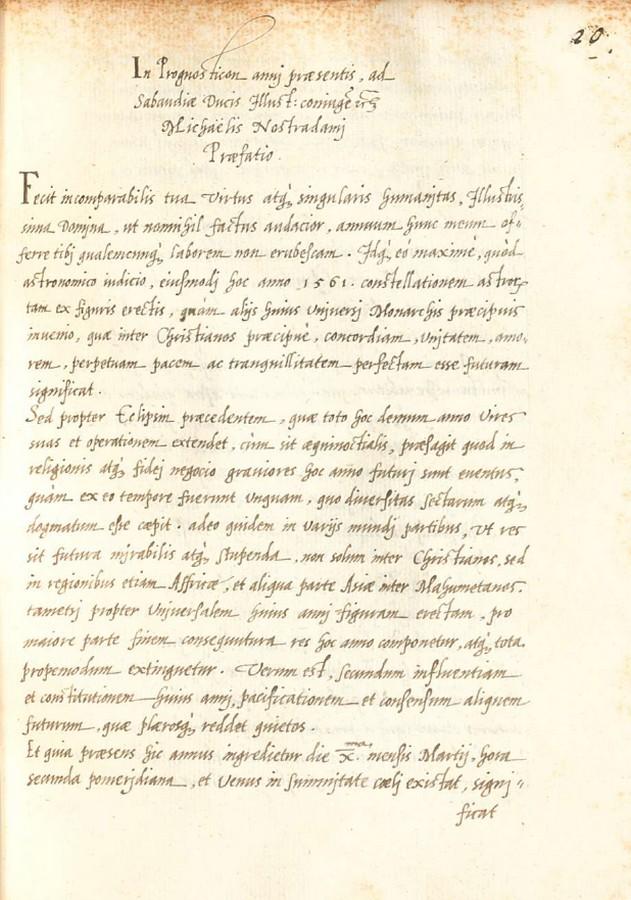 20.
In Prognosticon annj præsentis, ad
Sabaudiæ Ducis Illust: coniugē
Michaëlis Nostradamj
Præfatio.
Fecit incomparabilis tua Virtus atq; singularis humanitas, Illustris,
sima Domina, ut nonnihil factus audacior, annuum hunc meum of=
ferre tibj qualemcunq; laborem non erubescam. Idq; eó maximè, quòd
astronomico iudicio, eiusmodj hoc anno 1561. constellationem astror,
tam ex figuris erectis, quàm alijs huius Vniuersj Monarchis præcipuis
inuenio, quæ inter Christianos præcipuè, concordiam, Vnitatem, amo,
rem, perpetuam pacem ac tranquillitatem perfectam esse futuram
significat.
Sed propter Eclipsin præcedentem, quæ toto hoc demum anno Vires
suas et operationem extendet, cum sit æquinoctialis, præsagit quod in
religionis atq; fidej negocio grauiores hoc anno futurj sunt euentus,
quàm ex eo tempore fuerunt Vnquam, quo diuersitas sectarum atq;
dogmatum esse cœpit. adeo quidem in Varijs mundj partibus, Vt res
sit futura mirabilis atq; stupenda, non solum inter Christianos, sed
in regionibus etiam Affricæ, et aliqua parte Asiæ inter Mahumetanos.
tametsj propter Vniuersalem huius annj figuram erectam, pro
maiore parte finem consequutura res hoc anno componetur, atq; tota
propemodum extinguetur. Verum est, secundum influentiam
et constitutionem huius annj, pacificationem et consensum aliquem
futurum, quæ plærosq; reddet quietos.
Et quia præsens hic annus ingredietur die x.ma mensis Martij, hora
secunda pomeridiana, et Venus in summitate cœlj existat, signj=
ficat